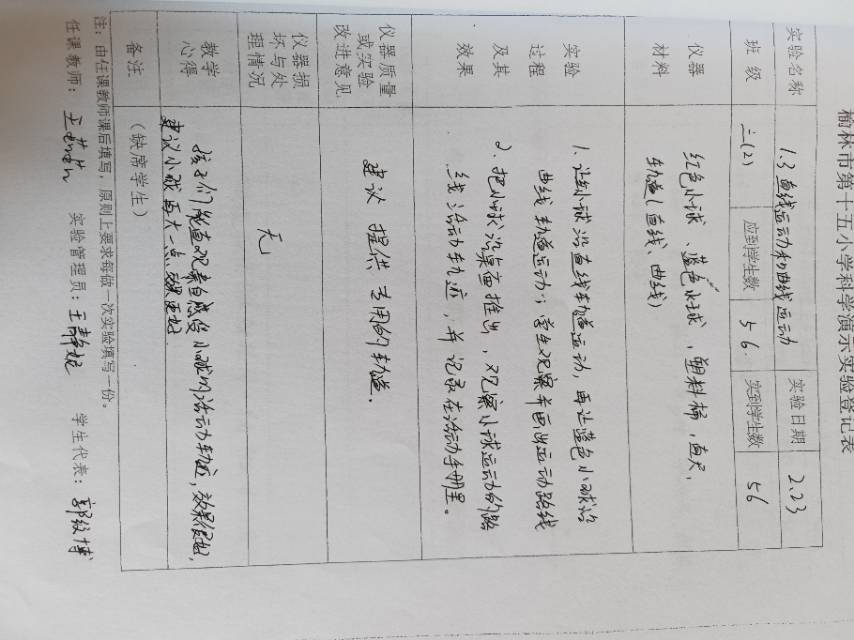 榆林市第十五小学科学演示实验登记表
实验名称 1.3 直线运动和曲线运动 实验日期 2.23
班级 三(2) 应到学生数 56 实到学生数 56
仪器材料
红色小球、蓝色小球、塑料桶、直尺、
轨道(直线、曲线)
实验过程及其效果
1、让小球沿直线轨道运动,再让蓝色小球沿
曲线轨道运动;学生观察并画出运动路线
2、把小球沿桌面推出,观察小球运动的路
线活动轨迹,并记录在活动手册里。
仪器质量或实验改进意见
建议提供专用的轨道.
仪器损坏与处理情况
无
教学心得
孩子们能直观亲自感受小球的活动轨迹,效果很好,
建议小球再大一点,效果更好.
备注 (缺席学生)
注:由任课教师课后填写,原则上要求每做一次实验填写一份。
任课教师: 实验管理员:王静妮 学生代表: